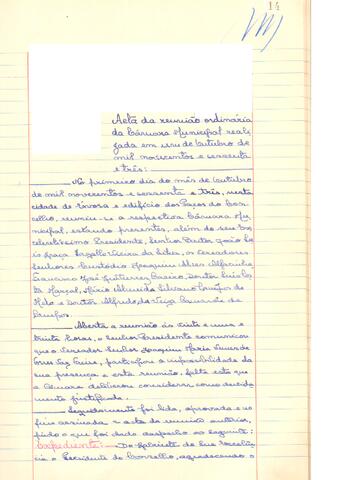 14
Acta da reunião ordinária
da Câmara Municipal reali
zada em um de Outubro de
mil novecentos e sessenta
e três:
No primeiro dia do mês de Outubro
de mil novecentos e sessenta e três, nesta
cidade de e edifício dos Paços do Con
celho, reuniu-se a respectiva Câmara Mu
nicipal, estando presentes, além do seu Ex
celentíssimo Presidente, Senhor Doutor João Lu
ís Vieira da Silva, os Vereadores
Senhores Custódio Joaquim Alves
José Gutierrez Doutor Luís
Mário Almeida Silvano
Melo e Doutor Alfredo da Veiga de
Campos.
Aberta a reunião às vinte e uma e
trinta horas, o Senhor Presidente comunicou
que o Vereador Senhor Joaquim Maria de
participou a impossibilidade da
sua presença a esta reunião, falta esta que
a Câmara deliberou considerar como devida
mente justificada.
Seguidamente foi lida, aprovada e no
fim assinada a acta da reunião anterior,
findo o que foi dado despacho ao seguinte:
Expediente: Do Gabinete de Sua Excelên
cia o Presidente do Conselho, agradecendo o